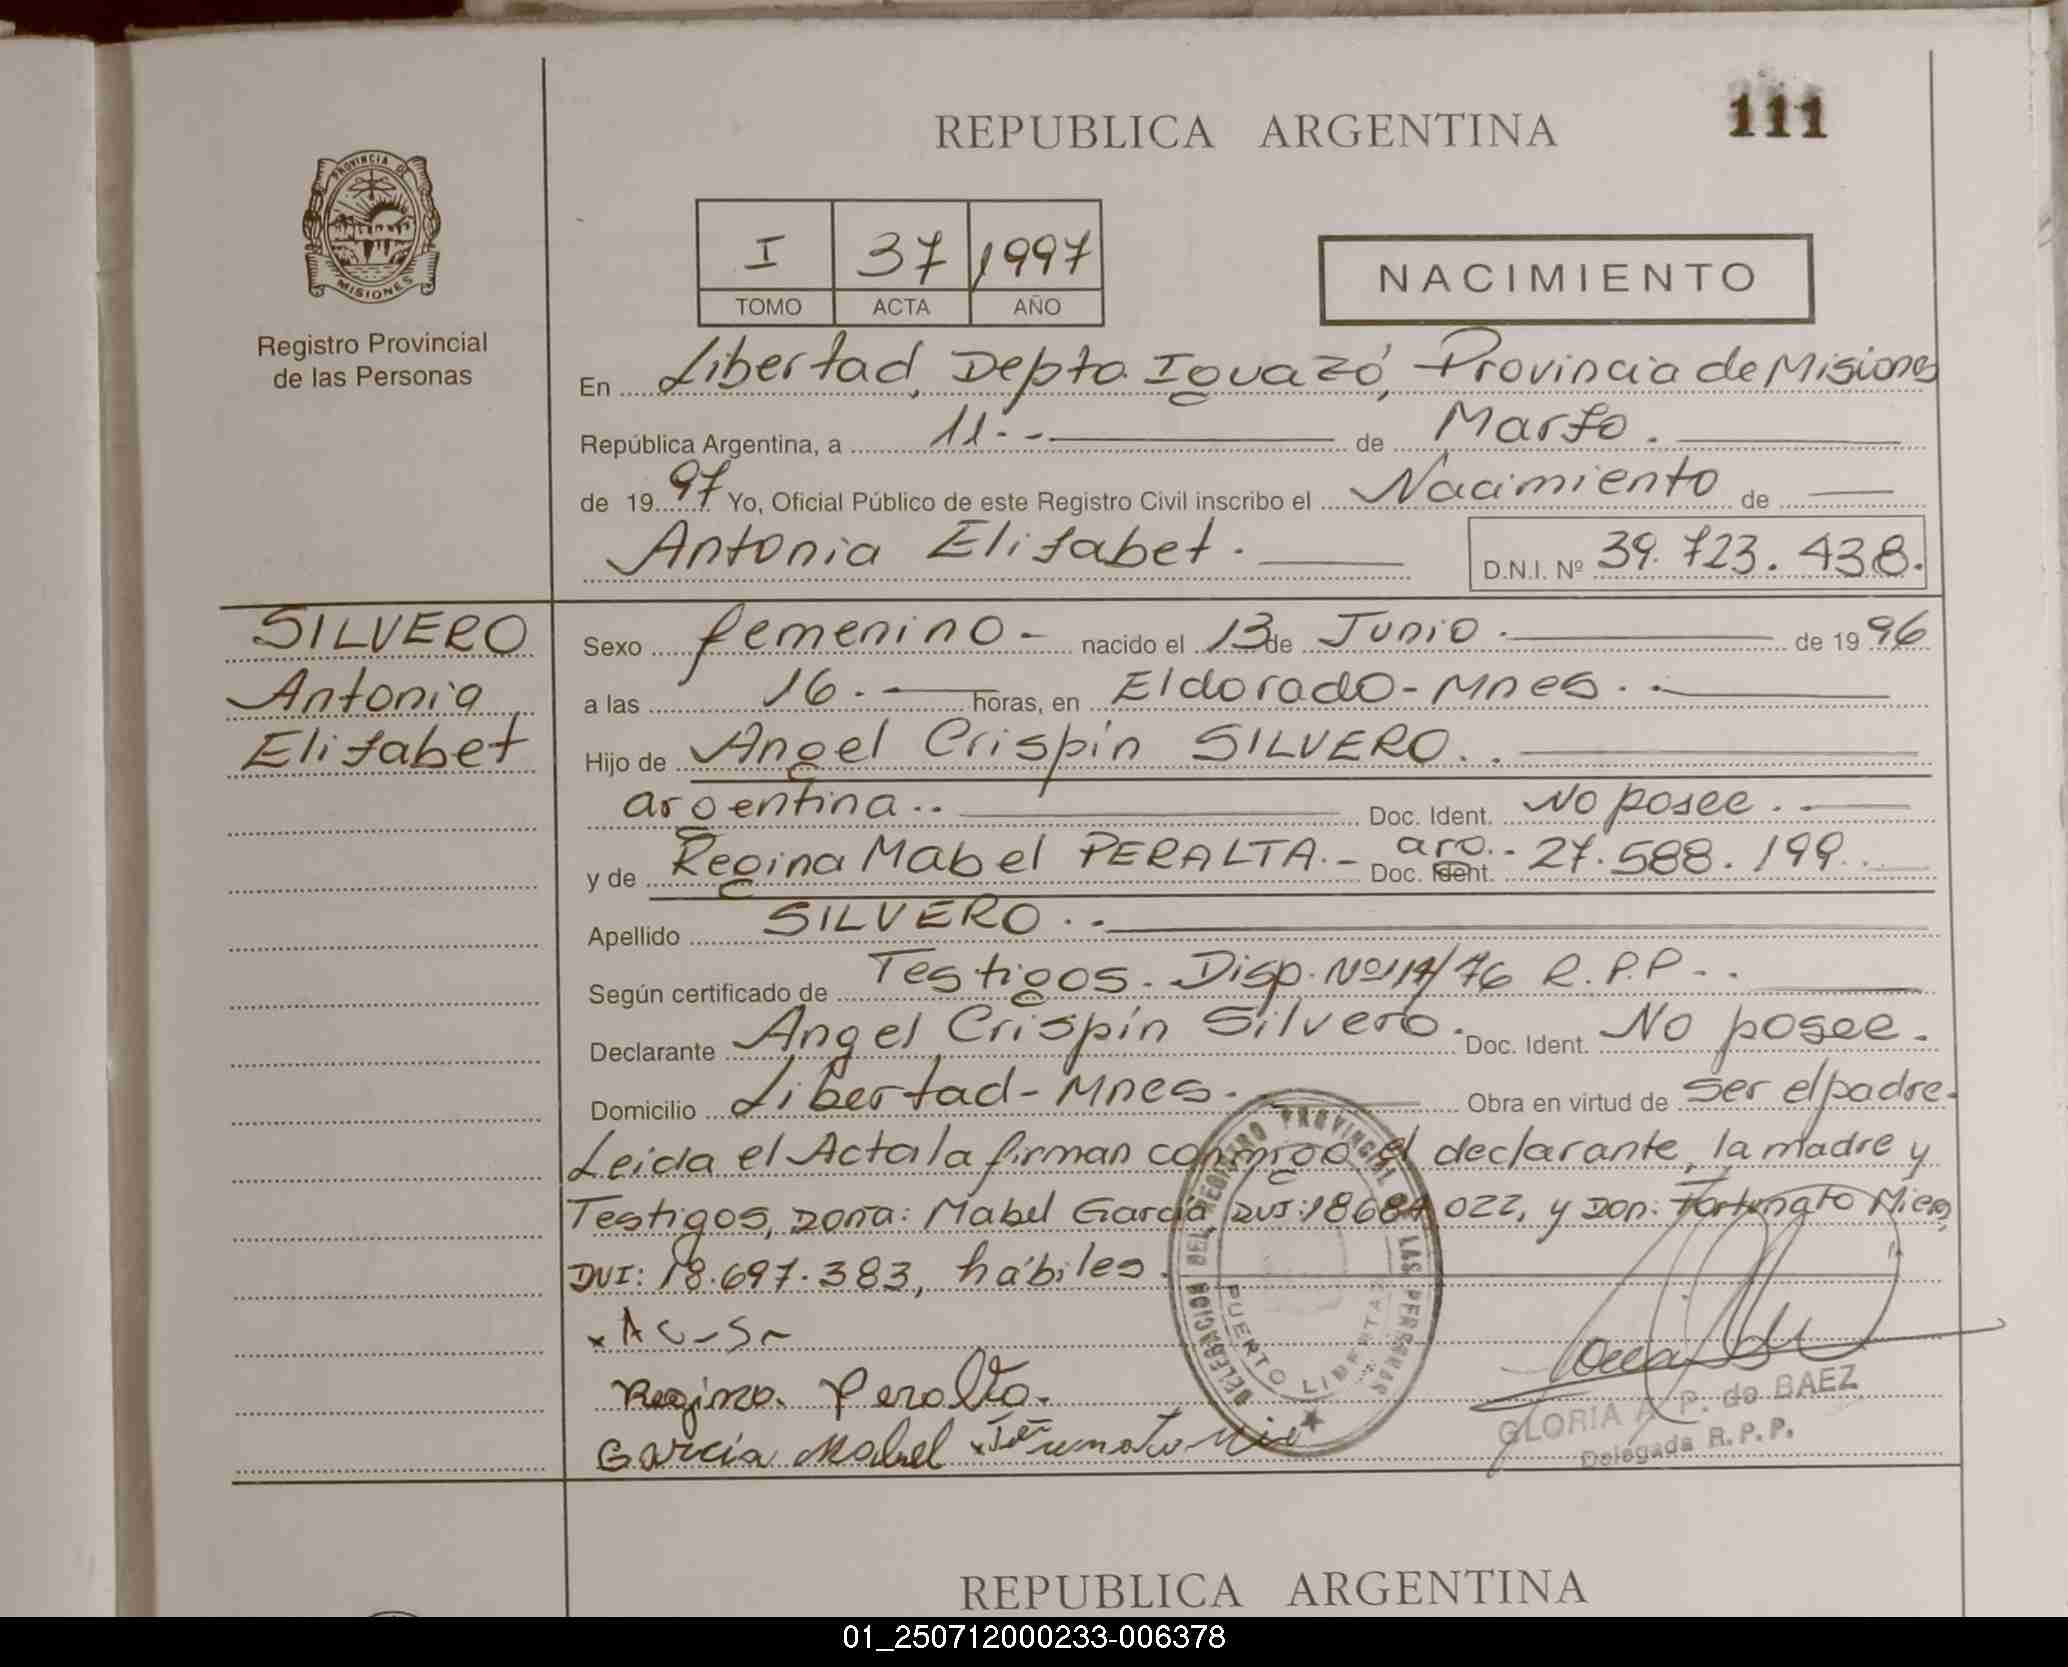 111
REPUBLICA ARGENTINA
PROVINCIA DE
MISIONES
Registro Provincial
de las Personas
I 37 1997
TOMO ACTA AÑO
NACIMIENTO
En Libertad, Depto Iguazú, Provincia de Misiones
República Argentina, a 11.- de Marzo.
de 19 97 Yo, Oficial Público de este Registro Civil inscribo el Nacimiento de
Antonia Elizabet.
D.N.I. Nº 39.723.438.
SILVERO
Antonia
Elizabet
Sexo femenino- nacido el 13 de Junio. de 19 96
a las 16.- horas, en Eldorado-Mnes..
Hijo de Angel Crispín SILVERO..
argentina.. Doc. Ident. No posee..
y de Regina Mabel PERALTA.- arg.- Doc. Ident. 27.588.199.
Apellido SILVERO..
Según certificado de Testigos. Disp. Nº 117/76 R.P.P..
Declarante Angel Crispín Silvero. Doc. Ident. No posee.
Domicilio Libertad-Mnes. Obra en virtud de ser el padre.
Leida el Acta la firman conmigo el declarante, la madre y
Testigos, Doña: Mabel Garcia DNI:18684.022, y Don: Fortunato Mier,
DNI: 18.697.383, hábiles.
Regina Peralta.
García Mabel
DELEGACION DEL REGISTRO PROVINCIAL DE LAS PERSONAS
PUERTO LIBERTAD
GLORIA A. P. de BAEZ
Delegada R.P.P.
REPUBLICA ARGENTINA
01_250712000233-006378